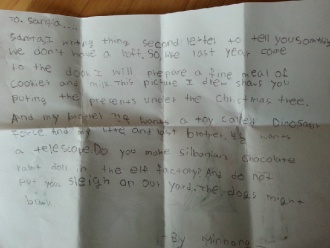 To. Santa....
Santa I writing thing second letter to tell you Something
We don't have a loft. So like last year come
to the door I will prepare a fine meal of
cookies and milk. This picture I drew shows you
puting the presents under the christmas tree.
And my wants a toy called Dinosaur
force And my little and last wants
a telescope. Do you make silbanian chocolate
rabit doll in the elf factory? And do not
put you sleigh on our yard. The dogs might
bark
By Minhong